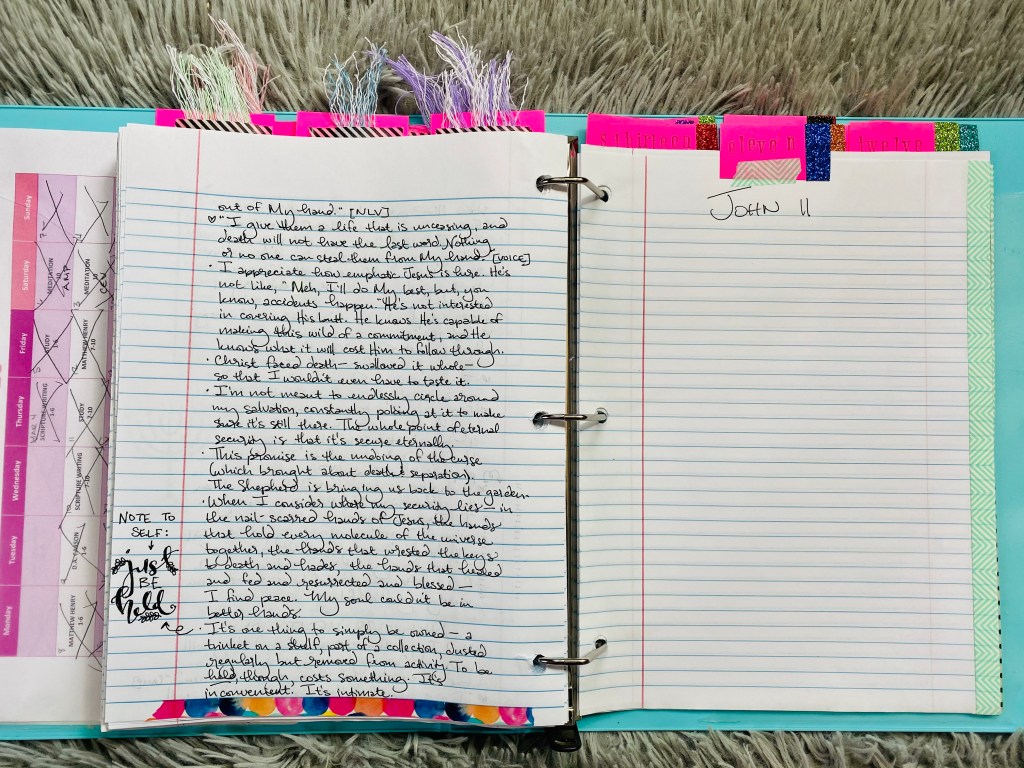 thirteen
eleven
twelve
JOHN 11
out of My hand." [NLV]
"I give them a life that is unceasing, and
death will not have the last word. Nothing
or no one can steal them from My hand. [VOICE]
· I appreciate how emphatic Jesus is here. He's
not like, "Meh, I'll do My best, but, you
know, accidents happen." He's not interested
in covering His butt. He knows He's capable of
making this wild of a commitment, and He
knows what it will cost Him to follow through.
· Christ faced death - swallowed it whole -
so that I wouldn't even have to taste it.
· I'm not meant to endlessly circle around
my salvation, constantly poking at it to make
sure it's still there. The whole point of eternal
security is that it's secure eternally.
· This promise is the undoing of the curse
(which brought about death & separation).
The Shepherd is bringing us back to the garden.
· When I consider where my security lies - in
the nail-scarred hands of Jesus, the hands
that hold every molecule of the universe
together, the hands that wrested the keys
to death and hades, the hands that healed
and fed and resurrected and blessed -
I find peace. My soul couldn't be in
better hands.
· It's one thing to simply be owned - a
trinket on a shelf, part of a collection, dusted
regularly but removed from activity. To be
held, though, costs something. It's
inconvenient. It's intimate.
NOTE TO
SELF:
just
BE
held
Sunday
Saturday
Friday
Thursday
Wednesday
Tuesday
Monday
MEDITATION
AMP
MEDITATION
CEV
STUDY
MATTHEW HENRY
7-10
SCRIPTURE WRITING
1-6
STUDY
7-10
SCRIPTURE WRITING
7-10
D.A. CARSON
1-6
MATTHEW HENRY
1-6